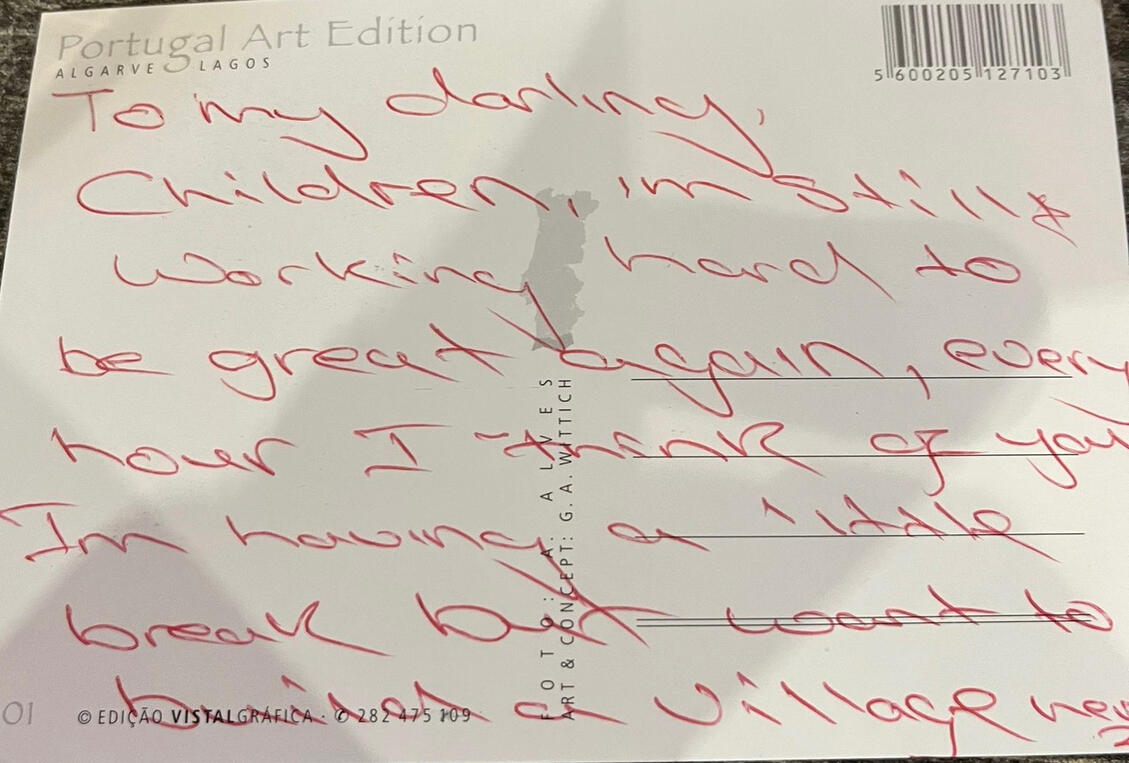 Portugal Art Edition
ALGARVE LAGOS
5 600205 127103
To my darling,
Children, im still
working hard to
be great again, every
hour I think of you
Im having a little
break but want to
build a village
01
© EDIÇÃO VISTALGRÁFICA · ✆ 282 475 109
FOTO: A. ALVES
ART & CONCEPT: G.A. WITTICH